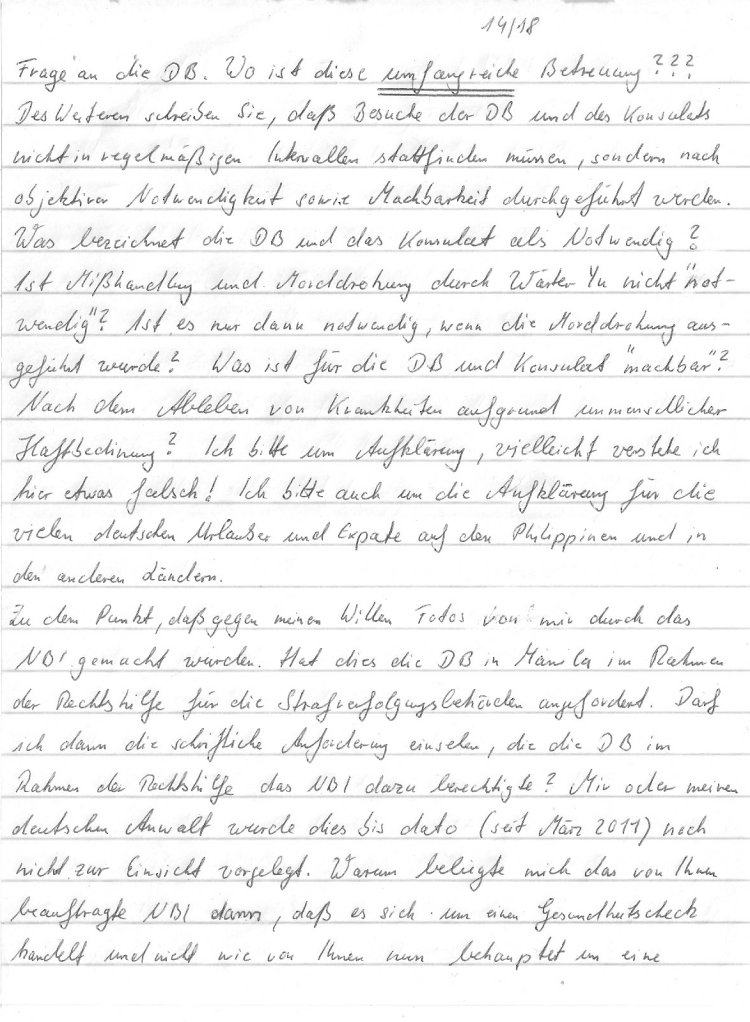 14/18
Frage an die DB. Wo ist diese umfangreiche Betreuung???
Des Weiteren schreiben Sie, daß Besuche der DB und des Konsulats
nicht in regelmäßigen Intervallen stattfinden müssen, sondern nach
objektiver Notwendigkeit sowie Machbarkeit durchgeführt werden.
Was bezeichnet die DB und das Konsulat als Notwendig?
Ist Mißhandlung und Morddrohung durch Wärter Yu nicht "not-
wendig"? Ist es nur dann notwendig, wenn die Morddrohung aus-
geführt wurde? Was ist für die DB und Konsulat "machbar"?
Nach dem Ableben von Krankheiten aufgrund unmenschlicher
Haftbedinung? Ich bitte um Aufklärung, vielleicht verstehe ich
hier etwas falsch! Ich bitte auch um die Aufklärung für die
vielen deutschen Urlauber und Expats auf den Philippinen und in
den anderen Ländern.
Zu dem Punkt, daß gegen meinen Willen Fotos von mir durch das
NBI gemacht wurden. Hat dies die DB in Manila im Rahmen
der Rechtshilfe für die Strafverfolgungsbehörden angefordert. Darf
ich dann die schriftliche Anforderung einsehen, die die DB im
Rahmen der Rechtshilfe das NBI dazu berechtigte? Mir oder meinen
deutschen Anwalt wurde dies bis dato (seit März 2011) noch
nicht zur Einsicht vorgelegt. Warum belügte mich das von Ihnen
beauftragte NBI dann, daß es sich um einen Gesundheitscheck
handelt und nicht wie von Ihnen nun behauptet um eine